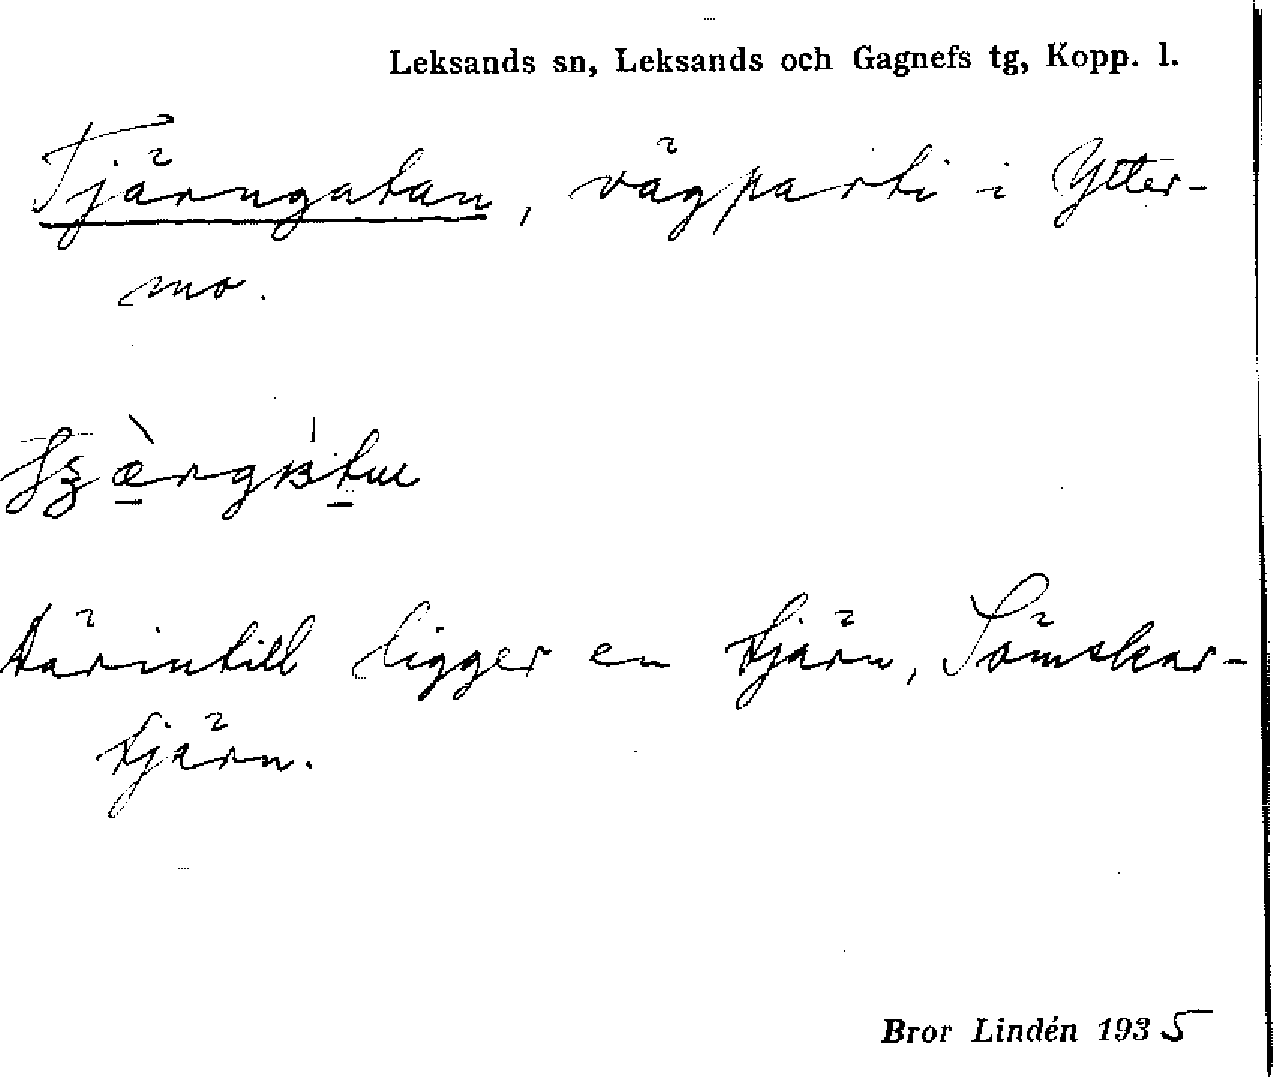 Leksands sn, Leksands och Gagnefs tg, Kopp. l.
Tjärngatan, vägparti i Ytter-
mo.
därintill ligger en tjärn, Sömskar-
tjärn.
Bror Lindén 1935